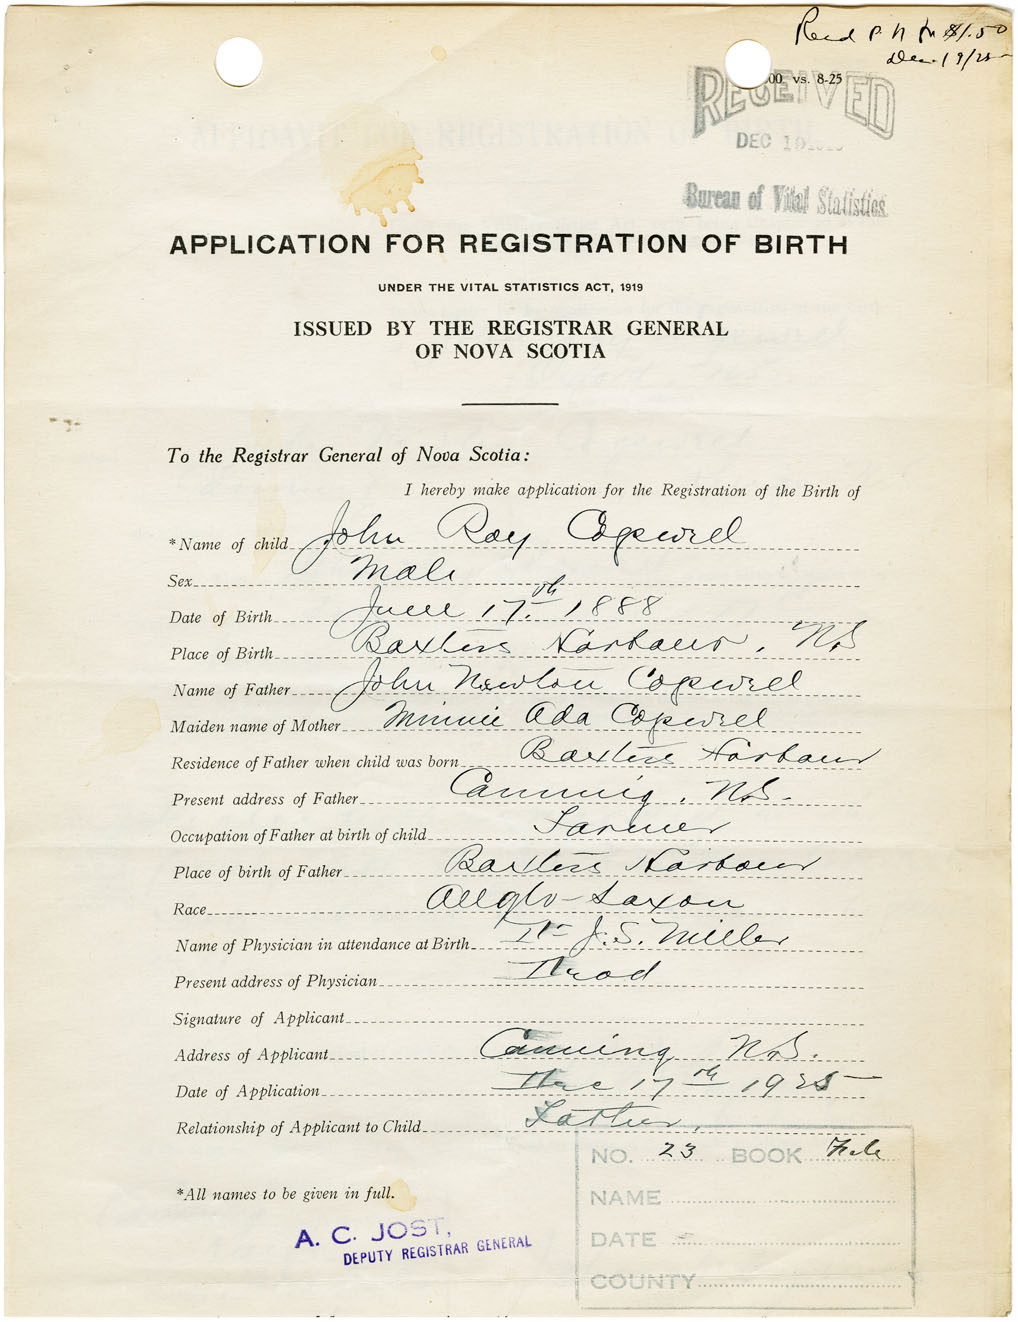 Recd P.N. for $1.50
Dec. 19/25
00 vs. 8-25
RECEIVED
DEC 19
Bureau of Vital Statistics
APPLICATION FOR REGISTRATION OF BIRTH
UNDER THE VITAL STATISTICS ACT, 1919
ISSUED BY THE REGISTRAR GENERAL
OF NOVA SCOTIA
To the Registrar General of Nova Scotia:
I hereby make application for the Registration of the Birth of
*Name of child John Roy Cogswell
Sex Male
Date of Birth June 17th 1888
Place of Birth Baxters Harbour, NS
Name of Father John Newton Cogswell
Maiden name of Mother Minnie Ada Cogswell
Residence of Father when child was born Baxters Harbour
Present address of Father Canning, N.S.
Occupation of Father at birth of child Farmer
Place of birth of Father Baxters Harbour
Race Anglo-Saxon
Name of Physician in attendance at Birth Dr J. S. Miller
Present address of Physician Dead
Signature of Applicant
Address of Applicant Canning N.S.
Date of Application Dec 17th 1925
Relationship of Applicant to Child Father.
NO. 23 BOOK
NAME
DATE
COUNTY
*All names to be given in full.
A. C. JOST,
DEPUTY REGISTRAR GENERAL